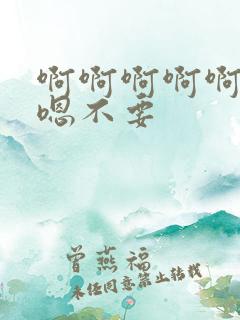 啊啊啊啊啊
嗯不要
曾燕福
未经同意禁止转载